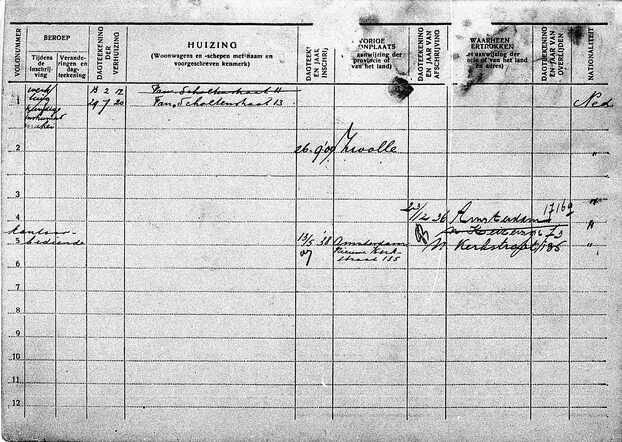 VOLGNUMMER
BEROEP
Tijdens de inschrijving
Veranderingen en dagteekening
DAGTEEKENING DER VERHUIZING
HUIZING
(Woonwagens en -schepen met naam en voorgeschreven kenmerk)
DAGTEEK EN JAAR INSCHRIJ
VORIGE
ONPLAATS
aanwijzing der
provincie of
van het land)
DAGTEEKENING EN JAAR VAN AFSCHRIJVING
WAARHEEN
ERTROKKEN
e aanwijzing der
ncie of van het land
en adres)
DAGTEEKENING EN JAAR VAN OVERLIJDEN
NATIONALITEIT
1
2 12
Van Scholtenstraat 11
29 7 20
Van Scholtenstraat 13
Ned
2
26 9 '09
Zwolle
"
3
"
4
23/12 36
Amsterdam
17169
kantoor-
bediende
5
13/5 '38
Amsterdam
Nieuwe Kerk-
straat 115
Kerkstraat
"
6
7
8
9
10
11
12